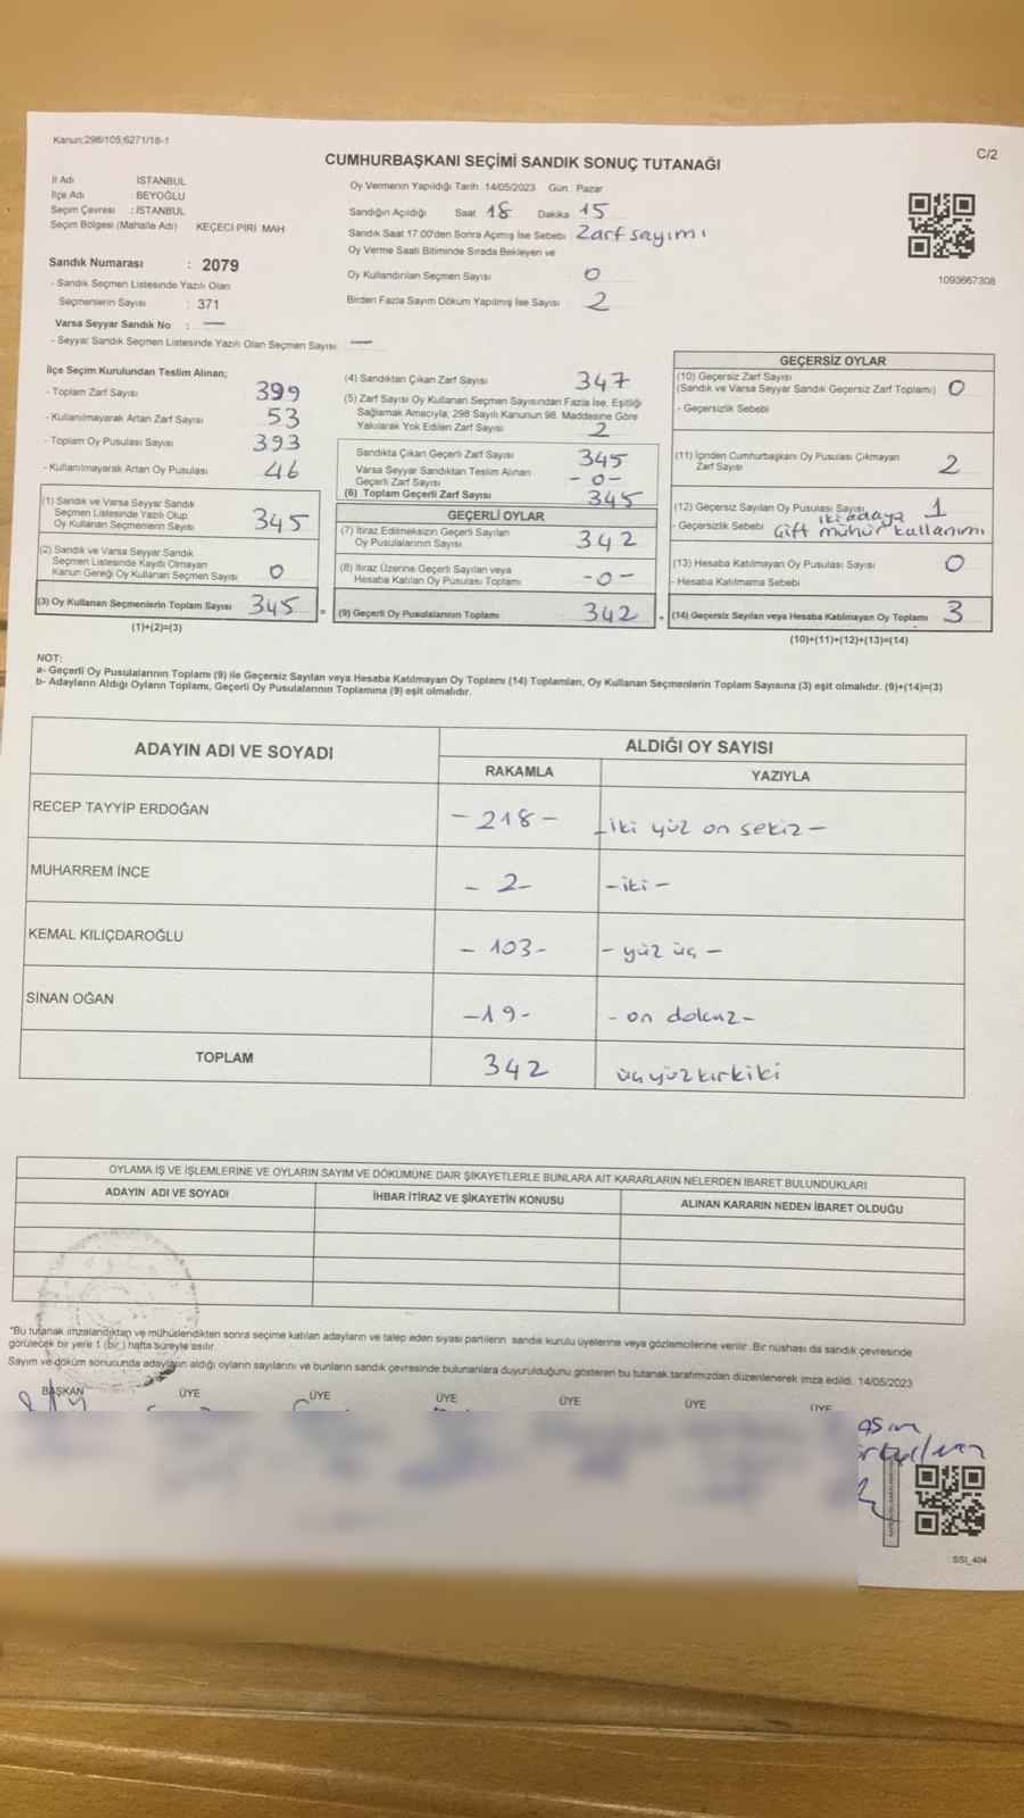 Kanun:298/105;6271/18-1
C/2
CUMHURBAŞKANI SEÇİMİ SANDIK SONUÇ TUTANAĞI
İl Adı İSTANBUL
İlçe Adı BEYOĞLU
Seçim Çevresi : İSTANBUL
Seçim Bölgesi (Mahalle Adı) KEÇECİ PİRİ MAH
Sandık Numarası : 2079
- Sandık Seçmen Listesinde Yazılı Olan
Seçmenlerin Sayısı : 371
Varsa Seyyar Sandık No : —
- Seyyar Sandık Seçmen Listesinde Yazılı Olan Seçmen Sayısı —
Oy Vermenin Yapıldığı Tarih: 14/05/2023 Gün: Pazar
Sandığın Açıldığı Saat 18 Dakika 15
Sandık Saat 17.00'den Sonra Açımış İse Sebebi: Zarf sayımı
Oy Verme Saati Bitiminde Sırada Bekleyen ve
Oy Kullandırılan Seçmen Sayısı 0
Birden Fazla Sayım Döküm Yapılmış İse Sayısı 2
1093667308
İlçe Seçim Kurulundan Teslim Alınan;
- Toplam Zarf Sayısı 399
- Kullanılmayarak Artan Zarf Sayısı 53
- Toplam Oy Pusulası Sayısı 393
- Kullanılmayarak Artan Oy Pusulası 46
(1) Sandık ve Varsa Seyyar Sandık
Seçmen Listesinde Yazılı Olup
Oy Kullanan Seçmenlerin Sayısı 345
(2) Sandık ve Varsa Seyyar Sandık
Seçmen Listesinde Kayıtlı Olmayan
Kanun Gereği Oy Kullanan Seçmen Sayısı 0
(3) Oy Kullanan Seçmenlerin Toplam Sayısı 345 =
(1)+(2)=(3)
(4) Sandıktan Çıkan Zarf Sayısı 347
(5) Zarf Sayısı Oy Kullanan Seçmen Sayısından Fazla İse, Eşitliği
Sağlamak Amacıyla, 298 Sayılı Kanunun 98. Maddesine Göre
Yakılarak Yok Edilen Zarf Sayısı 2
Sandıkta Çıkan Geçerli Zarf Sayısı 345
Varsa Seyyar Sandıktan Teslim Alınan
Geçerli Zarf Sayısı -0-
(6) Toplam Geçerli Zarf Sayısı 345
GEÇERLİ OYLAR
(7) İtiraz Edilmeksizin Geçerli Sayılan
Oy Pusulalarının Sayısı 342
(8) İtiraz Üzerine Geçerli Sayılan veya
Hesaba Katılan Oy Pusulası Toplamı -0-
(9) Geçerli Oy Pusulalarının Toplamı 342
GEÇERSİZ OYLAR
(10) Geçersiz Zarf Sayısı
(Sandık ve Varsa Seyyar Sandık Geçersiz Zarf Toplamı) 0
- Geçersizlik Sebebi
(11) İçinden Cumhurbaşkanı Oy Pusulası Çıkmayan
Zarf Sayısı 2
(12) Geçersiz Sayılan Oy Pusulası Sayısı 1
- Geçersizlik Sebebi iki adaya
Çift mühür kullanımı
(13) Hesaba Katılmayan Oy Pusulası Sayısı 0
- Hesaba Katılmama Sebebi
(14) Geçersiz Sayılan veya Hesaba Katılmayan Oy Toplamı 3
(10)+(11)+(12)+(13)=(14)
NOT:
a- Geçerli Oy Pusulalarının Toplamı (9) ile Geçersiz Sayılan veya Hesaba Katılmayan Oy Toplamı (14) Toplamları, Oy Kullanan Seçmenlerin Toplam Sayısına (3) eşit olmalıdır. (9)+(14)=(3)
b- Adayların Aldığı Oyların Toplamı, Geçerli Oy Pusulalarının Toplamına (9) eşit olmalıdır.
ADAYIN ADI VE SOYADI
ALDIĞI OY SAYISI
RAKAMLA YAZIYLA
RECEP TAYYİP ERDOĞAN -218- -iki yüz on sekiz-
MUHARREM İNCE -2- -iki-
KEMAL KILIÇDAROĞLU -103- -yüz üç-
SİNAN OĞAN -19- -on dokuz-
TOPLAM 342 üçyüzkırkiki
OYLAMA İŞ VE İŞLEMLERİNE VE OYLARIN SAYIM VE DÖKÜMÜNE DAİR ŞİKAYETLERLE BUNLARA AİT KARARLARIN NELERDEN İBARET BULUNDUKLARI
ADAYIN ADI VE SOYADI İHBAR İTİRAZ VE ŞİKAYETİN KONUSU ALINAN KARARIN NEDEN İBARET OLDUĞU
"Bu tutanak imzalandıktan ve mühürlendikten sonra seçime katılan adayların ve talep eden siyasi partilerin sandık kurulu üyelerine veya gözlemcilerine verilir. Bir nüshası da sandık çevresinde
görülecek bir yere 1 (bir) hafta süreyle asılır
Sayım ve döküm sonucunda adayların aldığı oyların sayılarını ve bunların sandık çevresinde bulunanlara duyurulduğunu gösteren bu tutanak tarafımızdan düzenlenerek imza edildi. 14/05/2023
BAŞKAN ÜYE ÜYE ÜYE ÜYE ÜYE ÜYE
SSI_404